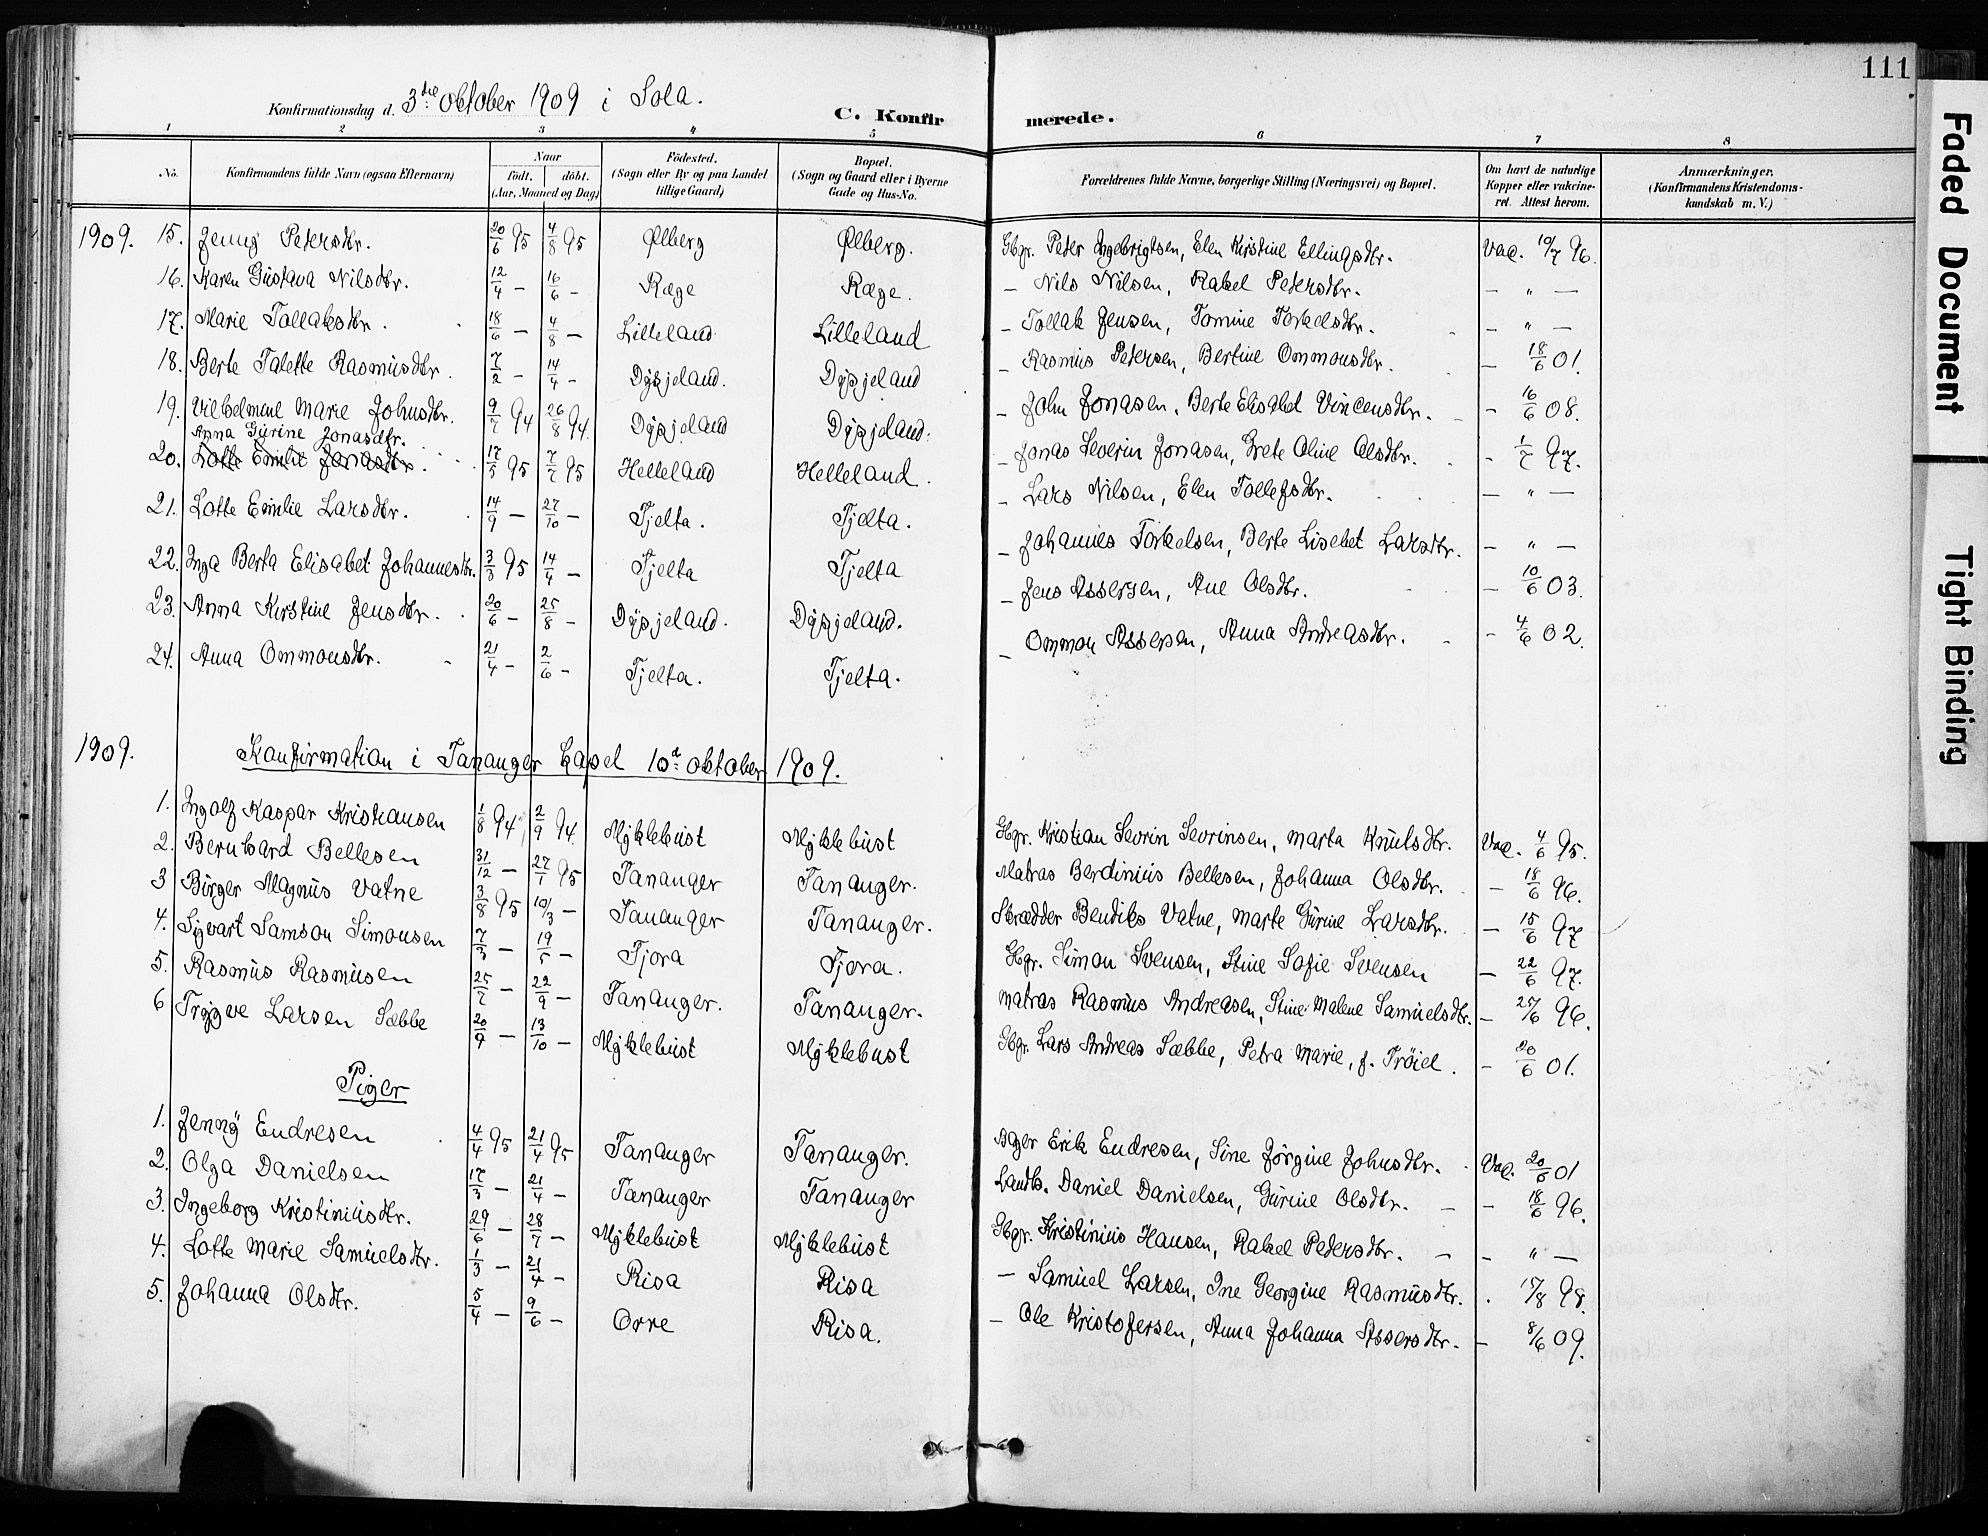 111
Konfirmationsdag d. 3die oktober 1909 i Sola.
C. Konfirmerede.
1 2 3 4 5 6 7 8
No. Konfirmandens fulde Navn (ogsaa Efternavn) Naar født. døbt. (Aar, Maaned og Dag) Fødested. (Sogn eller By og paa Landet tillige Gaard) Bopæl. (Sogn og Gaard eller i Byerne Gade og Hus-No. Forældrenes fulde Navne, borgerlige Stilling (Næringsvei) og Bopæl. Om havt de naturlige Kopper eller vakcineret. Attest herom. Anmærkninger. (Konfirmandens Kristendomskundskab m. V.)
1909. 15. Jenny Petersdtr. 20/6 95 4/8 95 Ølberg Ølberg. Gbgr. Peter Ingebrigtsen, Elen Kirstine Ellingsdtr. Vac. 10/7 96.
16. Karen Gustava Nilsdtr. 12/4 – 16/6 – Ræge Ræge. – Nils Nilsen, Rakel Petersdtr. – " –
17. Marie Tollaksdtr. 18/6 – 4/8 – Lilleland Lilleland – Tollak Jensen, Tomine Torkelsdtr. – " –
18. Berte Talette Rasmusdtr. 7/2 – 14/4 – Dysjeland. Dysjeland – Rasmus Petersen, Bertine Ommonsdtr. – 18/6 01.
19. Vilhelmine Marie Johnsdtr. 9/7 94 26/8 94. Dysjeland Dysjeland. – John Jonasen, Berte Elisabet Vincensdtr. – 16/6 08.
Anna Gurine Jonasdtr.
20. Lotte Emilie Jonasdtr. 17/5 95 7/7 95 Helleland Helleland. – Jonas Severin Jonasen, Grete Oline Olsdtr. – 1/7 97.
21. Lotte Emilie Larsdtr. 14/9 – 27/10 – Tjelta. Tjelta. – Lars Nilsen, Elen Tollefsdtr. – " –
22. Inga Berta Elisabet Johannesdtr. 3/3 95 14/4 – Tjelta Tjelta – Johannes Torkelsen, Berte Lisebet Larsdtr. – " –
23. Anna Kirstine Jensdtr. 20/6 – 25/8 – Dysjeland. Dysjeland. – Jens Assersen, Ane Olsdtr. – 10/6 03.
24. Anna Ommonsdtr. 21/4 – 2/6 – Tjelta. Tjelta. – Ommon Assersen, Anna Andreasdtr. – 4/6 02.
1909. Konfirmation i Tananger Kapel 10de oktober 1909.
1. Ingolf Kaspar Kristiansen 1/8 94 2/9 94. Myklebust Myklebust Gbgr. Kristian Sevrin Sevrinsen, Marta Knutsdtr. Vac. 4/6 95.
2. Bernhard Bellesen 31/12 – 27/1 95 Tananger Tananger. Matros Berdinius Bellesen, Johanna Olsdtr. – 18/6 96.
3 Birger Magnus Vatne 3/8 95 10/3 – Tananger Tananger. Skrædder Bendiks Vatne, Marte Gurine Larsdtr. – 15/6 97
4. Sigvart Samson Simonsen 7/3 – 19/5 – Tjora Tjora. Gbgr. Simon Svensen, Stine Sofie Svensen – 22/6 97.
5. Rasmus Rasmusen 25/7 – 22/9 – Tananger. Tananger. Matros Rasmus Andreasen, Stine Malene Samuelsdtr. – 25/6 96.
6 Trygve Larsen Sæbbe 20/9 – 13/10 – Myklebust Myklebust Gbgr. Lars Andreas Sæbbe, Petra Marie, f. Trøiel. – 20/6 01.
Piger
1. Jenny Endresen 4/4 95 21/4 95 Tananger Tananger. Erik Endresen, Sine Jørgine Johnsdtr. Vac. 20/6 01
2. Olga Danielsen 17/3 – 21/4 – Tananger Tananger Landh. Daniel Danielsen, Gurine Olsdtr. – 18/6 96.
3. Ingeborg Kristiniusdtr. 29/6 – 28/7 – Myklebust Myklebust Gbgr. Kristinius Hansen, Rakel Pedersdtr. – " –
4. Lotte Marie Samuelsdtr. 1/3 – 21/4 – Risa Risa – Samuel Larsen, Ine Georgine Rasmusdtr. 15/8 98.
5. Johanna Olsdtr. 5/4 – 9/6 – Orre Risa. – Ole Kristofersen, Anna Johanna Assersdtr. – 8/6 09.
Faded Document
Tight Binding